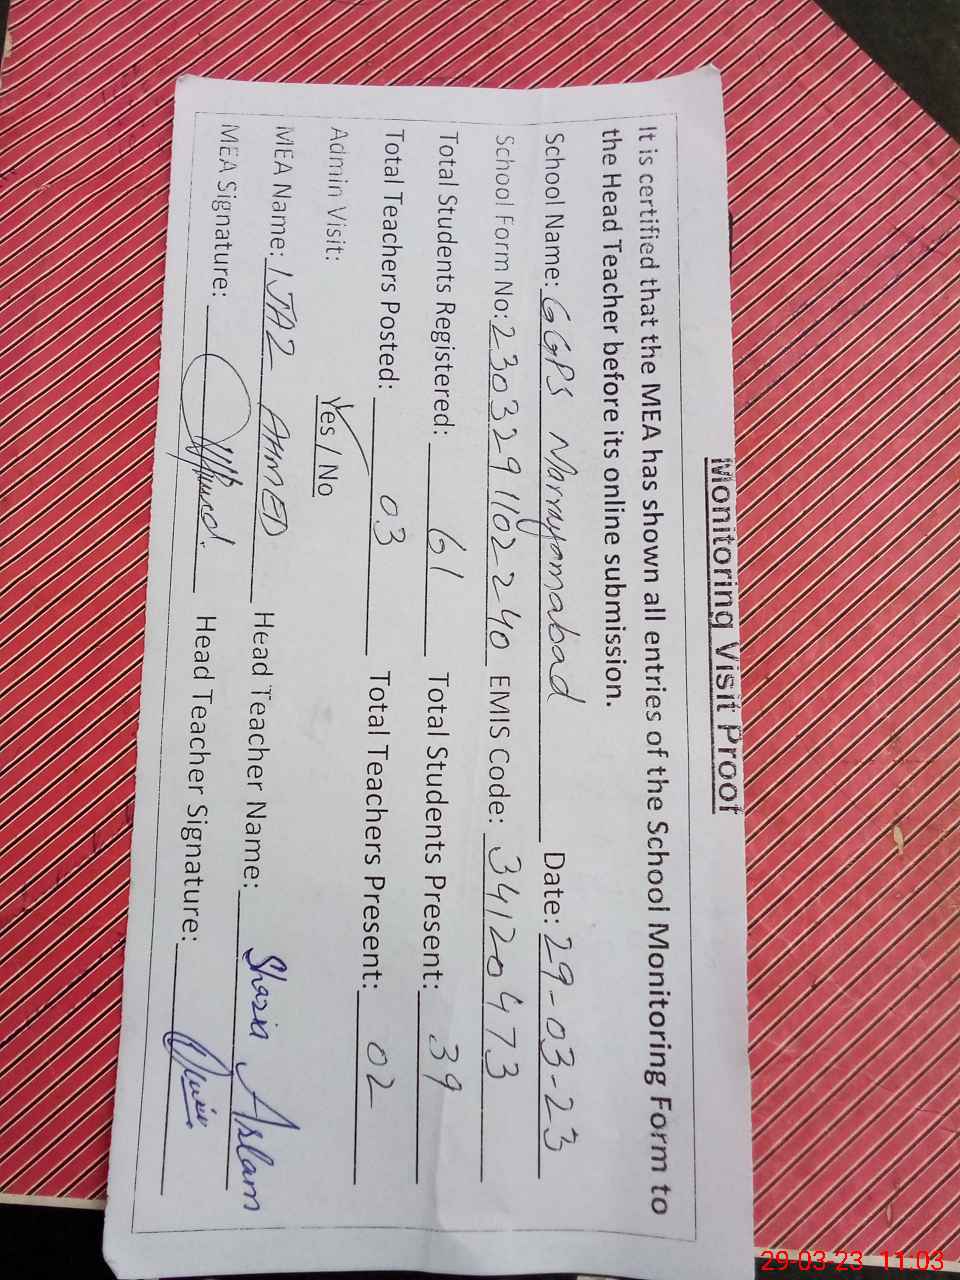 Monitoring Visit Proof
It is certified that the MEA has shown all entries of the School Monitoring Form to
the Head Teacher before its online submission.
School Name: GGPS Marrayamabad Date: 29-03-23
School Form No: 2303291102240 EMIS Code: 34120473
Total Students Registered: 61 Total Students Present: 39
Total Teachers Posted: 03 Total Teachers Present: 02
Admin Visit: Yes / No
MEA Name: IJAZ AHMED Head Teacher Name: Shazia Aslam
MEA Signature: Head Teacher Signature:
29-03-23 11:03